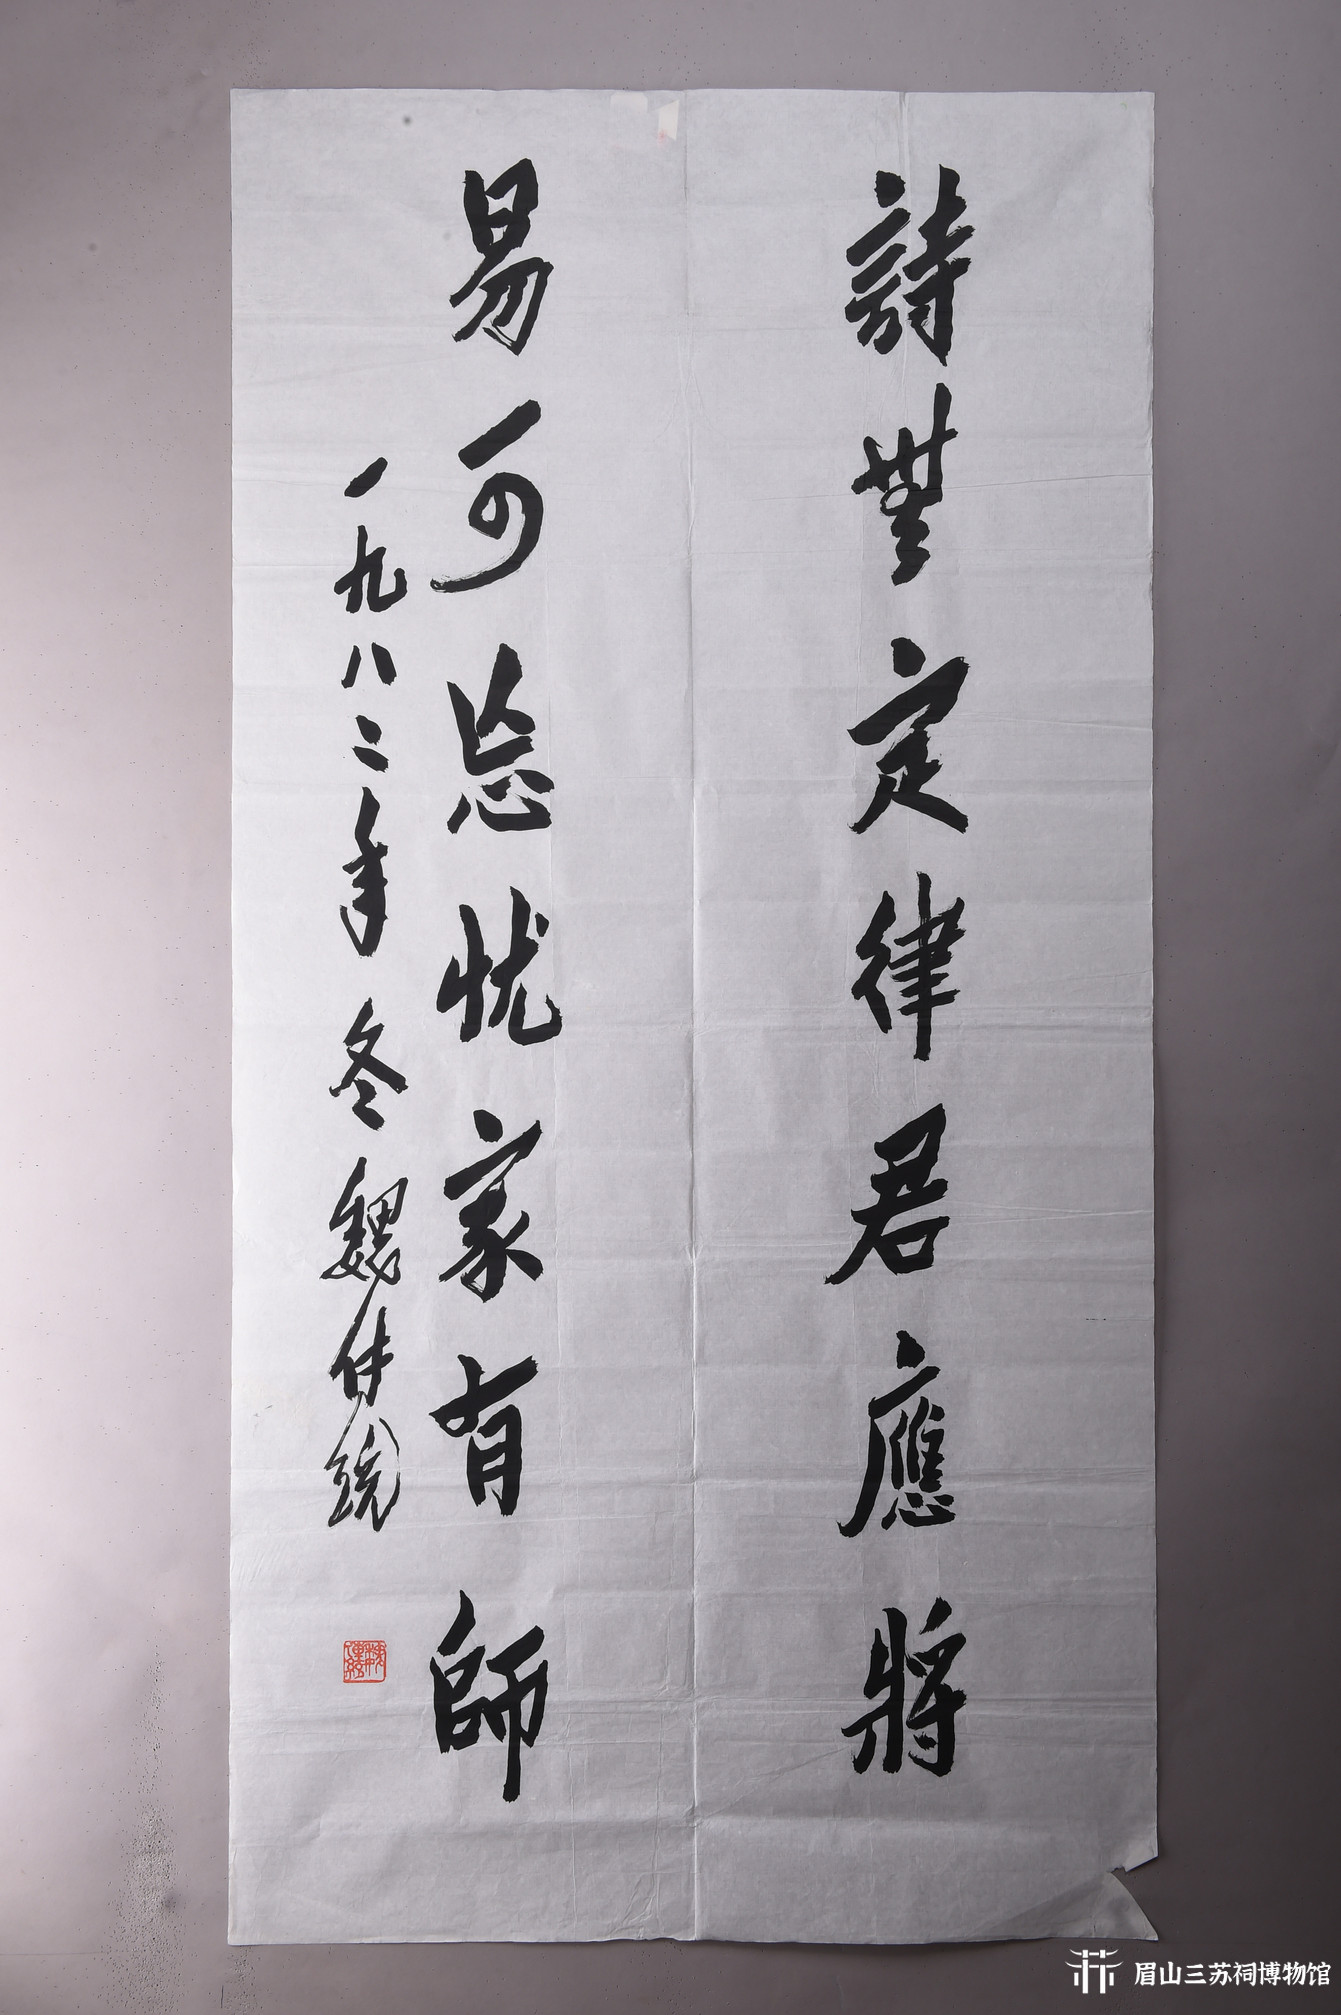 詩無定律君應將
易可忘忧家有師
一九八二年冬魏传统
眉山三苏祠博物馆